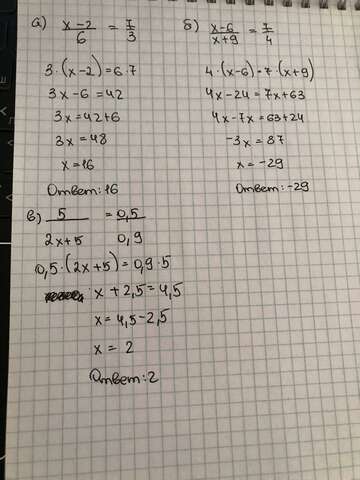 а) x-2/6 = 7/3
3·(x-2)=6·7
3x-6=42
3x=42+6
3x=48
x=16
Ответ: 16
б) x-6/x+9 = 7/4
4·(x-6)=7·(x+9)
4x-24=7x+63
4x-7x=63+24
-3x=87
x=-29
Ответ: -29
в) 5/2x+5 = 0,5/0,9
0,5·(2x+5)=0,9·5
x+2,5=4,5
x=4,5-2,5
x=2
Ответ: 2